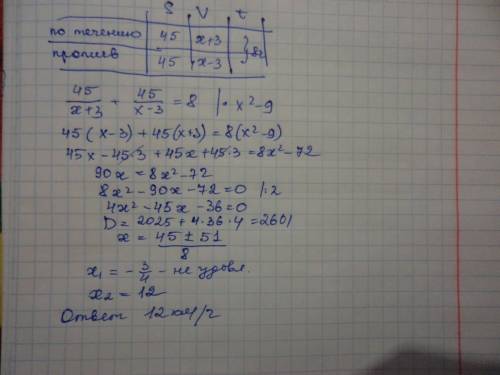 S V t
по течению 45 x+3 } 8ч
против 45 x-3
45/(x+3) + 45/(x-3) = 8 |· x²-9
45(x-3)+45(x+3)=8(x²-9)
45x-45·3+45x+45·3=8x²-72
90x=8x²-72
8x²-90x-72=0 |:2
4x²-45x-36=0
D=2025+4·36·4=2601
x=(45±51)/8
x₁=-3/4 - не удовл.
x₂=12
Ответ 12км/ч